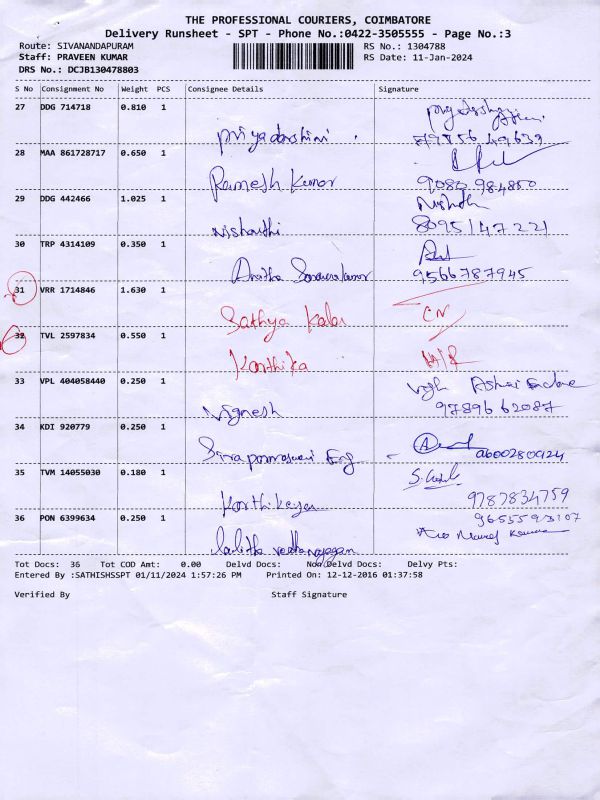 THE PROFESSIONAL COURIERS, COIMBATORE
Delivery Runsheet - SPT - Phone No.:0422-3505555 - Page No.:3
Route: SIVANANDAPURAM RS No.: 1304788
Staff: PRAVEEN KUMAR RS Date: 11-Jan-2024
DRS No.: DCJB130478803
S No Consignment No Weight PCS Consignee Details Signature
27 DDG 714718 0.810 1
Priyadarshini
28 MAA 861728717 0.650 1
Ramesh Kumar
29 DDG 442466 1.025 1
Nishanthi 8095147221
30 TRP 4314109 0.350 1
9566787945
31 VRR 1714846 1.630 1
Sathya Kala CN
32 TVL 2597834 0.550 1
Karthika
33 VPL 404058440 0.250 1
Vignesh 9789662087
34 KDI 920779 0.250 1
35 TVM 14055030 0.180 1
Karthikeyan 9787834759
36 PON 6399634 0.250 1
Lalitha
Tot Docs: 36 Tot COD Amt: 0.00 Delvd Docs: Non Delvd Docs: Delvy Pts:
Entered By :SATHISHSSPT 01/11/2024 1:57:26 PM Printed On: 12-12-2016 01:37:58
Verified By Staff Signature